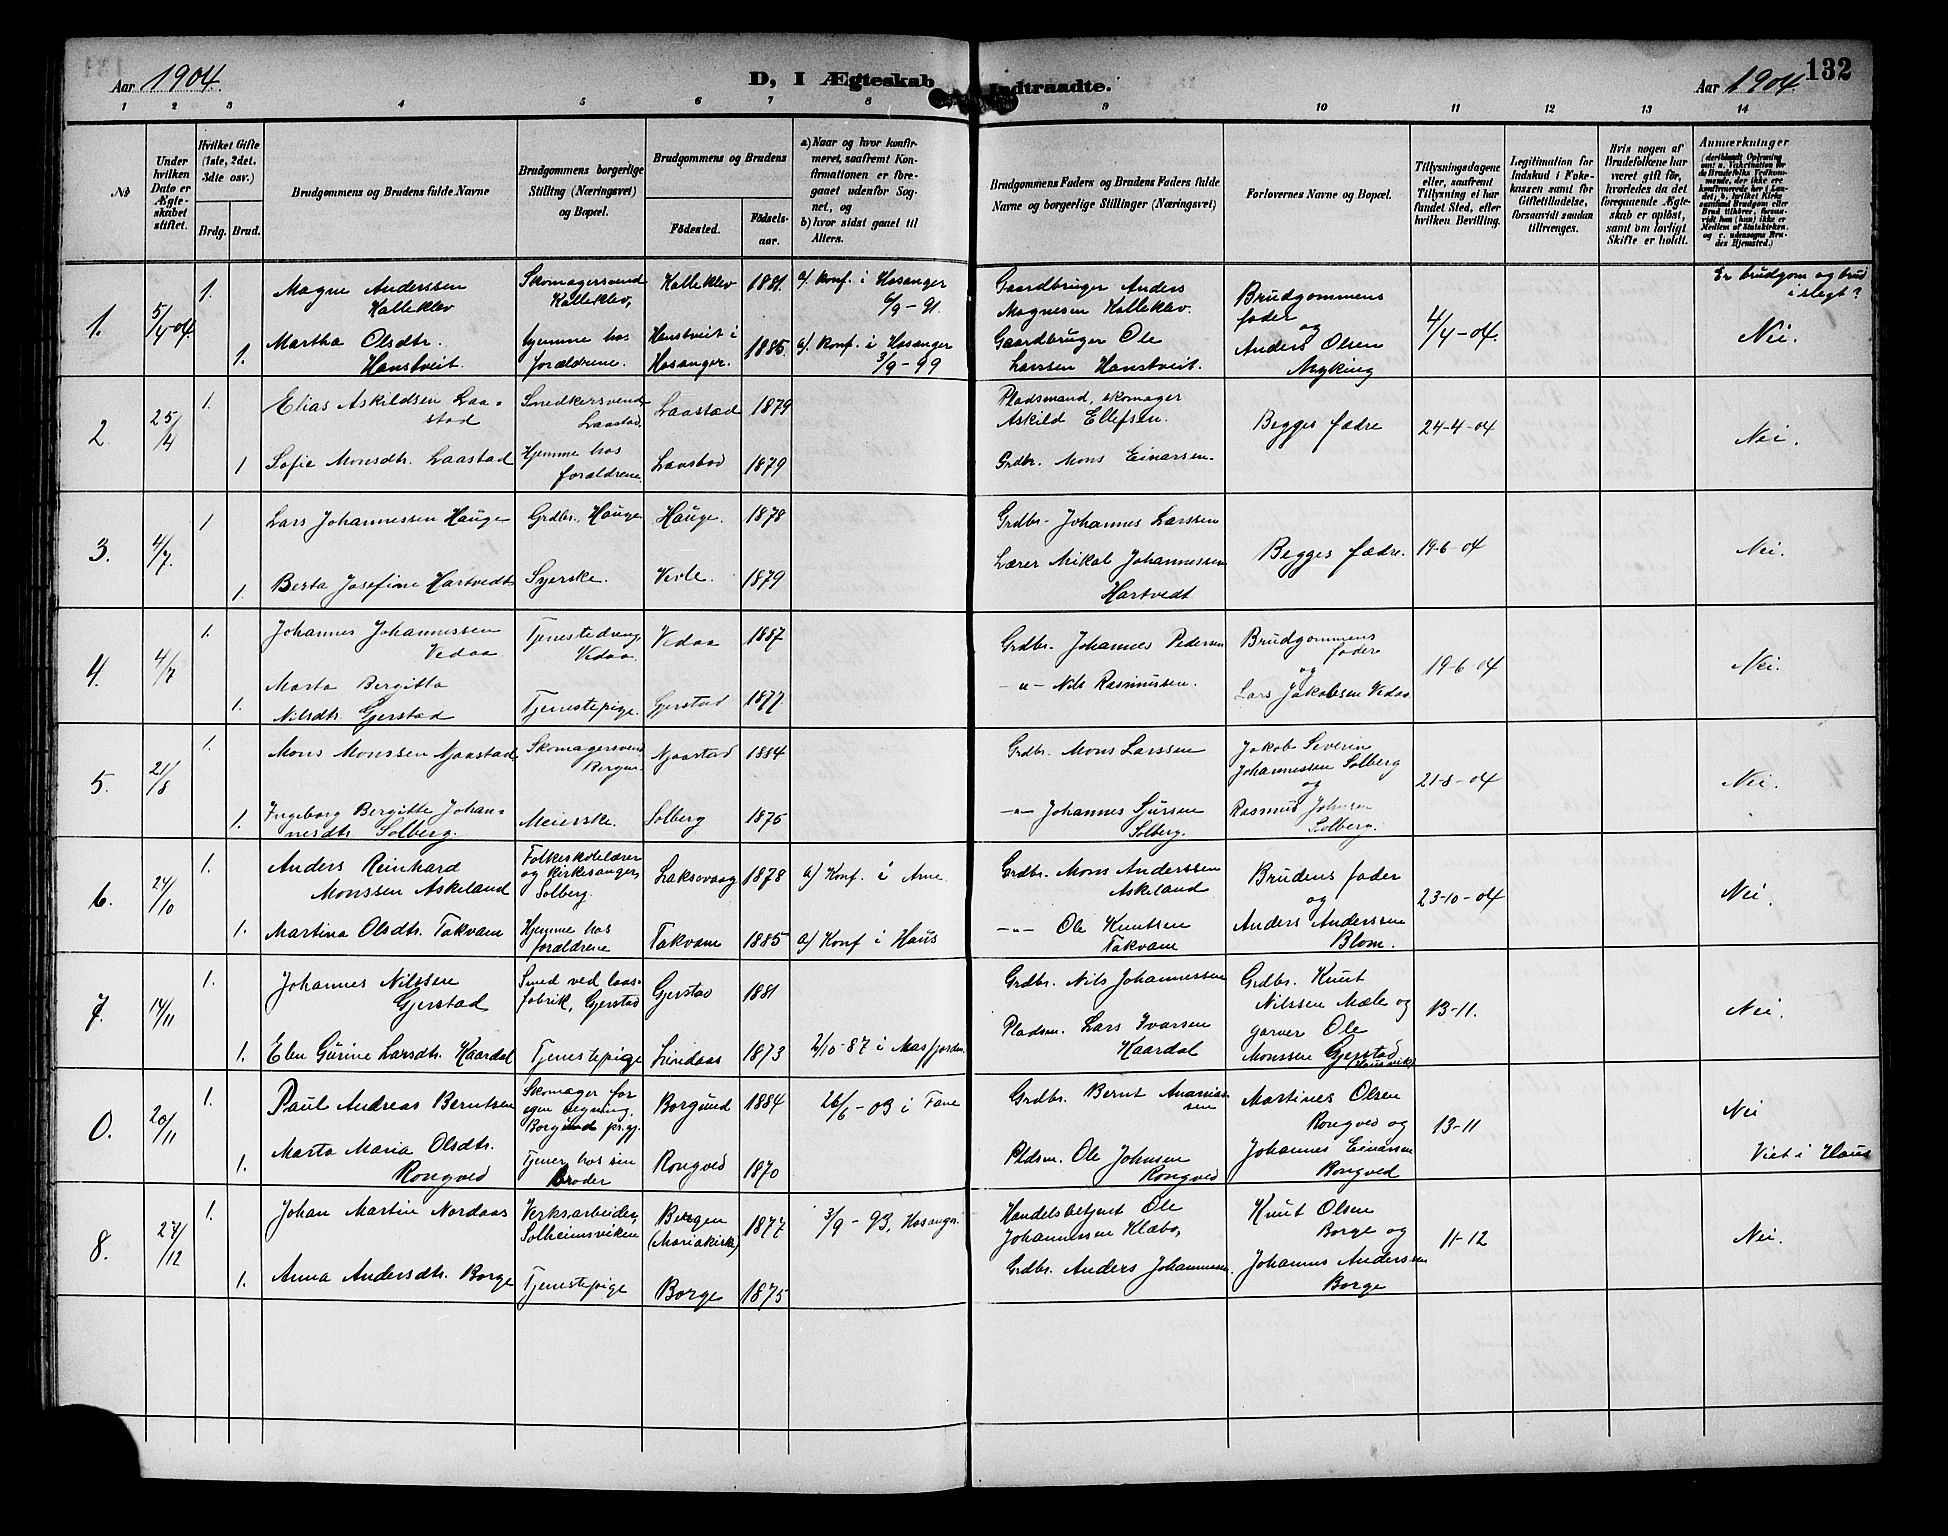 Aar 1904. D, I Ægteskab Indtraadte. Aar 1904. 132
1 2 3 4 5 6 7 8 9 10 11 12 13 14
№
Under hvilken Dato er Ægteskabet stiftet.
Hvilket Gifte (1ste, 2det, 3die osv.)
Brdg. Brud.
Brudgommens og Brudens fulde Navne
Brudgommens borgerlige Stilling (Næringsvei) og Bopæl.
Brudgommens og Brudens
Födested. Födselsaar.
a) Naar og hvor konfirmeret, saafremt Konfirmationen er foregaaet udenfor Sognet, og
b) hvor sidst gaaet til Alters.
Brudgommens Faders og Brudens Faders fulde Navne og borgerlige Stillinger (Næringsvei)
Forlovernes Navne og Bopæl.
Tillysningsdagene eller, saafremt Tillysning ei har fundet Sted, efter hvilken Bevilling.
Legitimation for Indskud i Enkekassen samt for Giftetilladelse, forsaavidt saadan tiltrænges.
Hvis nogen af Brudefolkene har været gift før, hvorledes da det foregaaende Ægteskab er oplöst, samt om lovligt Skifte er holdt.
Anmærkninger
Er brudgom og brud i slegt?
1. 5/4 04. 1. Magne Anderssen Kalleklev
Skomagersvend Kalleklev, Kalleklev 1881. a). Konf. i Hosanger 6/9 - 91.
Gaardbruger Anders Magnesen Kalleklev.
1. Martha Olsdtr. Hanstveit.
hjemme hos forældrene. Hanstveit i Hosanger. 1885 a). Konf. i Hosanger 3/9 - 99
Gaardbruger Ole Larssen Hanstveit.
Brudgommens fader og Anders Olsen Myking
4/4 - 04. Nei.
2. 25/4 1. Elias Askildsen Laastad
Snedkersvend, Laastad. Laastad 1879
Pladsmand, skomager Askild Ellefsen.
1 Sofie Monsdtr. Laastad
Hjemme hos forældrene. Laastad 1879
Grdbr. Mons Einarsen.
Begges fædre 24-4-04 Nei.
3. 4/7. 1 Lars Johannessen Hauge
Grdbr., Hauge. Hauge. 1878
Grdbr. Johannes Larssen
1. Berta Josefine Hartvedt
Syerske. Vesle. 1879
Lærer Mikal Johannessen Hartvedt
Begges fædre. 19-6-04 Nei.
4. 4/7 1. Johannes Johannessen Vedaa
Tjenestedreng, Vedaa. Vedaa 1887
Grdbr. Johannes Pedersen
1. Marta Bergitta Nilsdtr. Gjerstad
Tjenestepige. Gjerstad 1877.
-"- Nils Rasmussen.
Brudgommens fader og Lars Jakobsen Vedaa
19-6-04 Nei.
5. 21/8 1. Mons Monssen Njaastad
Skomagersvend Bergen. Njaastad 1884
Grdbr. Mons Larssen
1. Ingeborg Bergitte Johannesdtr. Solberg.
Meierske. Solberg 1876
-"- Johannes Sjursen Solberg.
Jakob Severin Johannessen Solberg og Rasmus Johnsen Solberg.
21-8-04 Nei.
6. 24/10 1. Anders Reinhard Monssen Askeland
Folkeskolelærer og kirkesanger, Solberg. Laksevaag 1878 a) Konf. i Arne
Grdbr. Mons Anderssen Askeland
1. Martina Olsdtr. Takvam
Hjemme hos forældrene Takvam 1885 a) Konf i Haus
-"- Ole Knutsen Takvam
Brudens fader og Anders Anderssen Blom.
23-10-04 Nei.
7. 14/11 1. Johannes Nilssen Gjerstad
Smed ved laasfabrik, Gjerstad Gjerstad 1881
Grdbr. Nils Johannessen
1. Elen Gurine Larsdtr. Kaardal
Tjenestepige Lindaas 1873 2/10-87 i Masfjorden
Pladsm. Lars Ivarsen Kaardal
Grdbr. Knut Nilssen Mæle og garver Ole Monssen Gjerstad
13-11. Nei.
0. 20/11 1. Paul Andreas Berntsen
Skomager for egen regning, Borgund Borgund 1884 26/6 - 03 i Fane
Grdbr. Bernt Ananiassen
1. Marta Maria Olsdtr. Rongved
Tjener hos sin Broder Rongved 1870
Pldsm. Ole Johnsen Rongved
Martines Olsen Rongved og Johannes Einarsen Rongved
13-11 Nei
Viet i Haus
8. 27/12 1. Johan Martin Nordaas
Verksarbeider, Solheimsviken Bergen (Mariakirk) 1877 3/9 - 93. Hosanger.
Handelsbetjent Ole Johannessen Klæbo,
1. Anna Andersdtr. Borge
Tjenestepige Borge 1875
Grdbr. Anders Johannessen.
Knut Olsen Borge og Johannes Anderssen Borge
11-12 Nei.